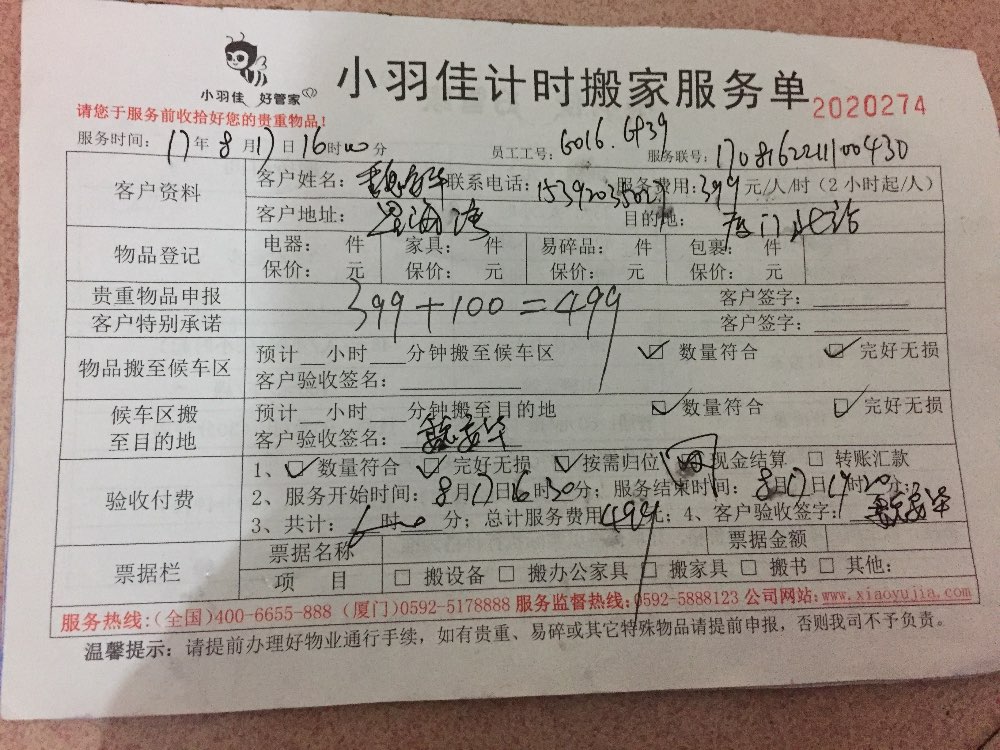 小羽佳 好管家
小羽佳计时搬家服务单
2020274
请您于服务前收拾好您的贵重物品!
服务时间: 17年8月17日16时00分 员工工号: G016. G939 服务联号: 170816221100430
客户资料 客户姓名: 联系电话: 服务费用: 399元/人/时(2小时起/人)
客户地址: 海湾 目的地: 厦门北站
物品登记 电器: 件 家具: 件 易碎品: 件 包裹: 件
保价: 元 保价: 元 保价: 元 保价: 元
贵重物品申报 399+100=499 客户签字:
客户特别承诺 客户签字:
物品搬至候车区 预计 小时 分钟搬至候车区 数量符合 完好无损
客户验收签名:
候车区搬至目的地 预计 小时 分钟搬至目的地 数量符合 完好无损
客户验收签名:
验收付费 1、数量符合 完好无损 按需归位 现金结算 转账汇款
2、服务开始时间: 8月17日16时30分; 服务结束时间: 8月17日 时20分;
3、共计: 时 分; 总计服务费用499元; 4、客户验收签字:
票据栏 票据名称 票据金额
项 目 搬设备 搬办公家具 搬家具 搬书 其他:
服务热线:(全国)400-6655-888 (厦门)0592-5178888 服务监督热线:0592-5888123 公司网站:www.xiaoyujia.com
温馨提示: 请提前办理好物业通行手续,如有贵重、易碎或其它特殊物品请提前申报,否则我司不予负责。